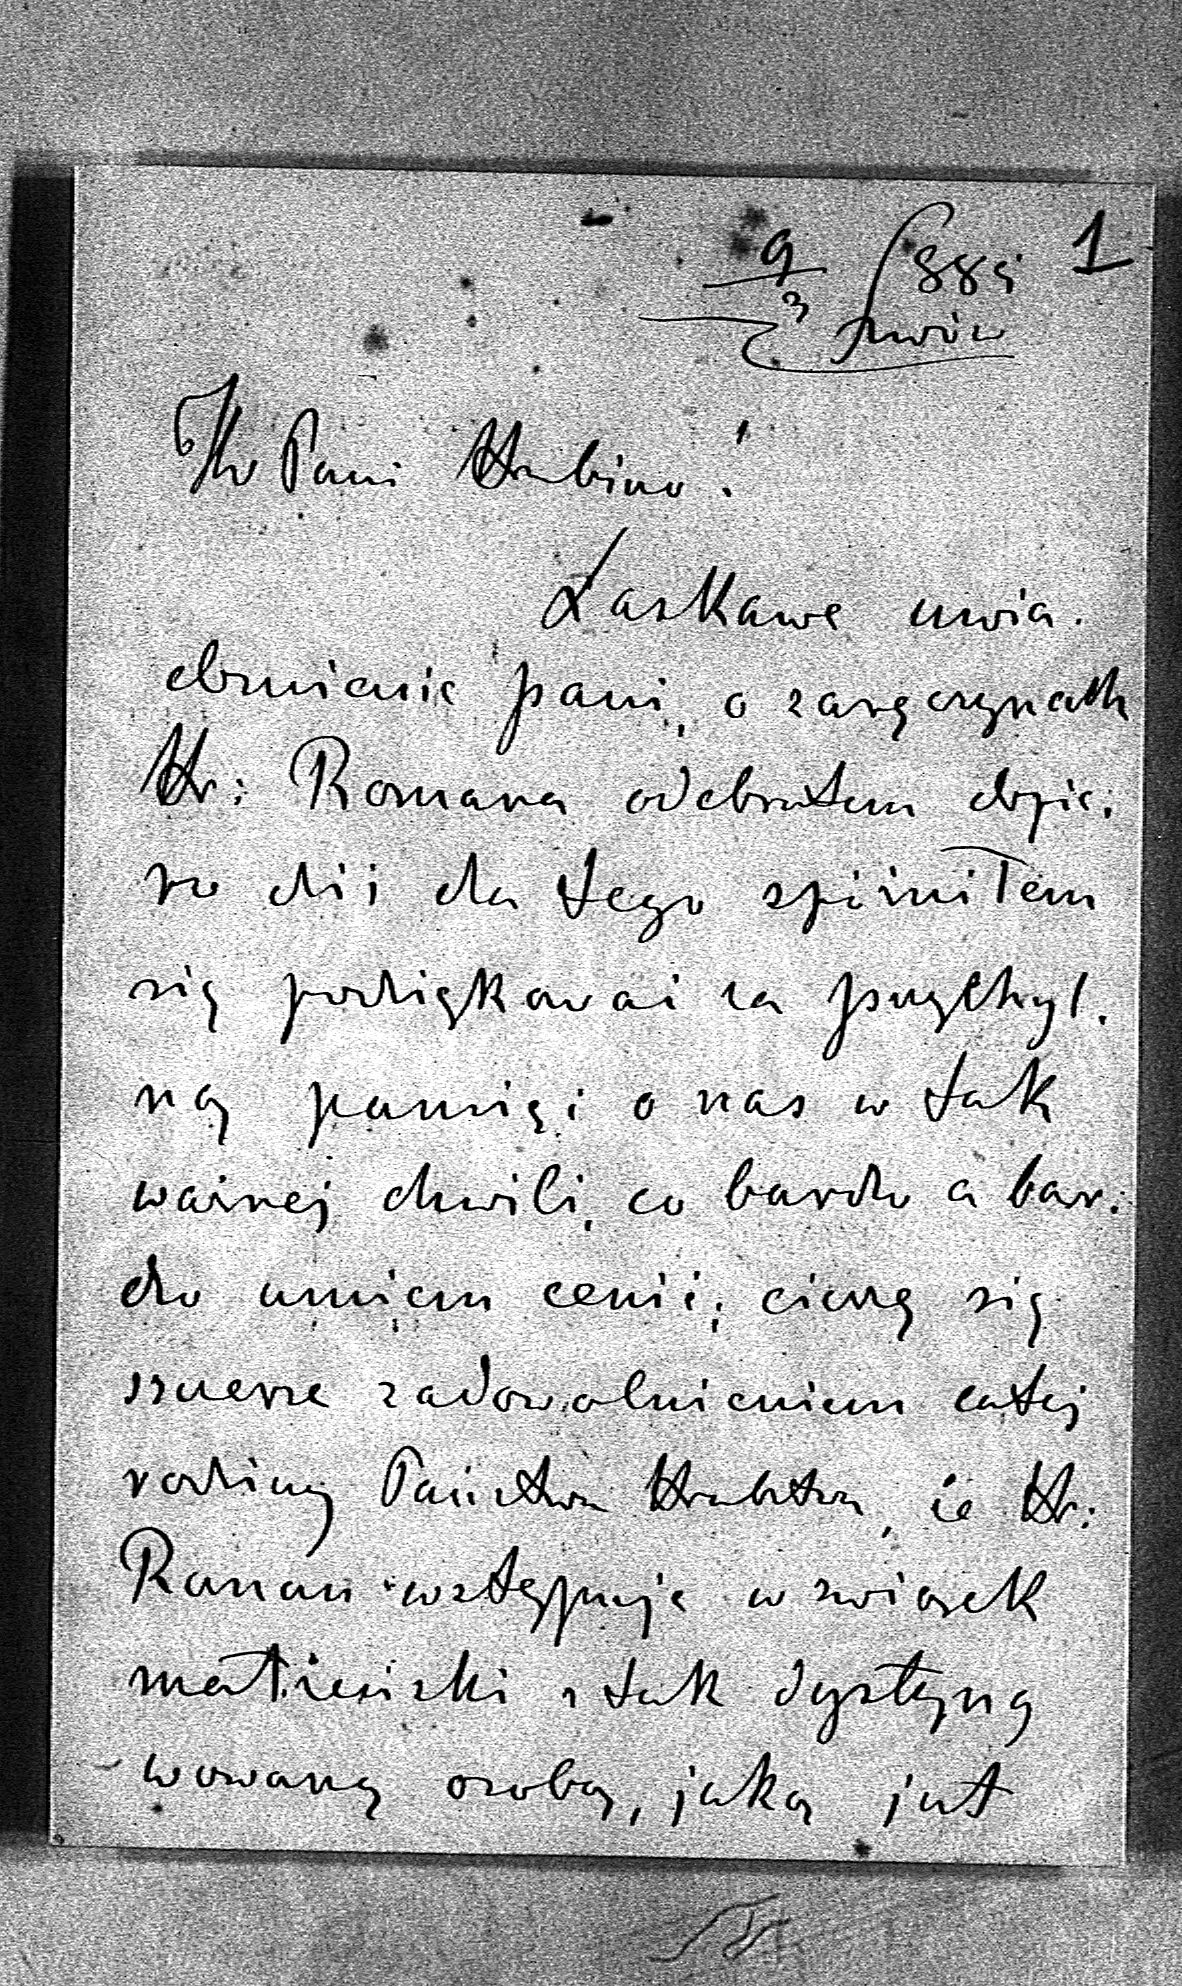 9/3 1885 1
Lwów
JW Pani Hrabino!
Łaskawe uwia-
domienie pani, o zaręczynach
Hr: Romana odebrałem dopie-
ro dziś dla tego spieszniłem
się podziękować za przychyl-
ną pamięć o nas w tak
ważnej chwili, co bardzo a bar-
dzo umiem cenić; cieszę się
szczerze zadowolnieniem całej
rodziny Państwa Hrabstwa, że Hr:
Roman wstępuje w związek
małżeński z tak dystyng
wowaną osobą, jaką jest